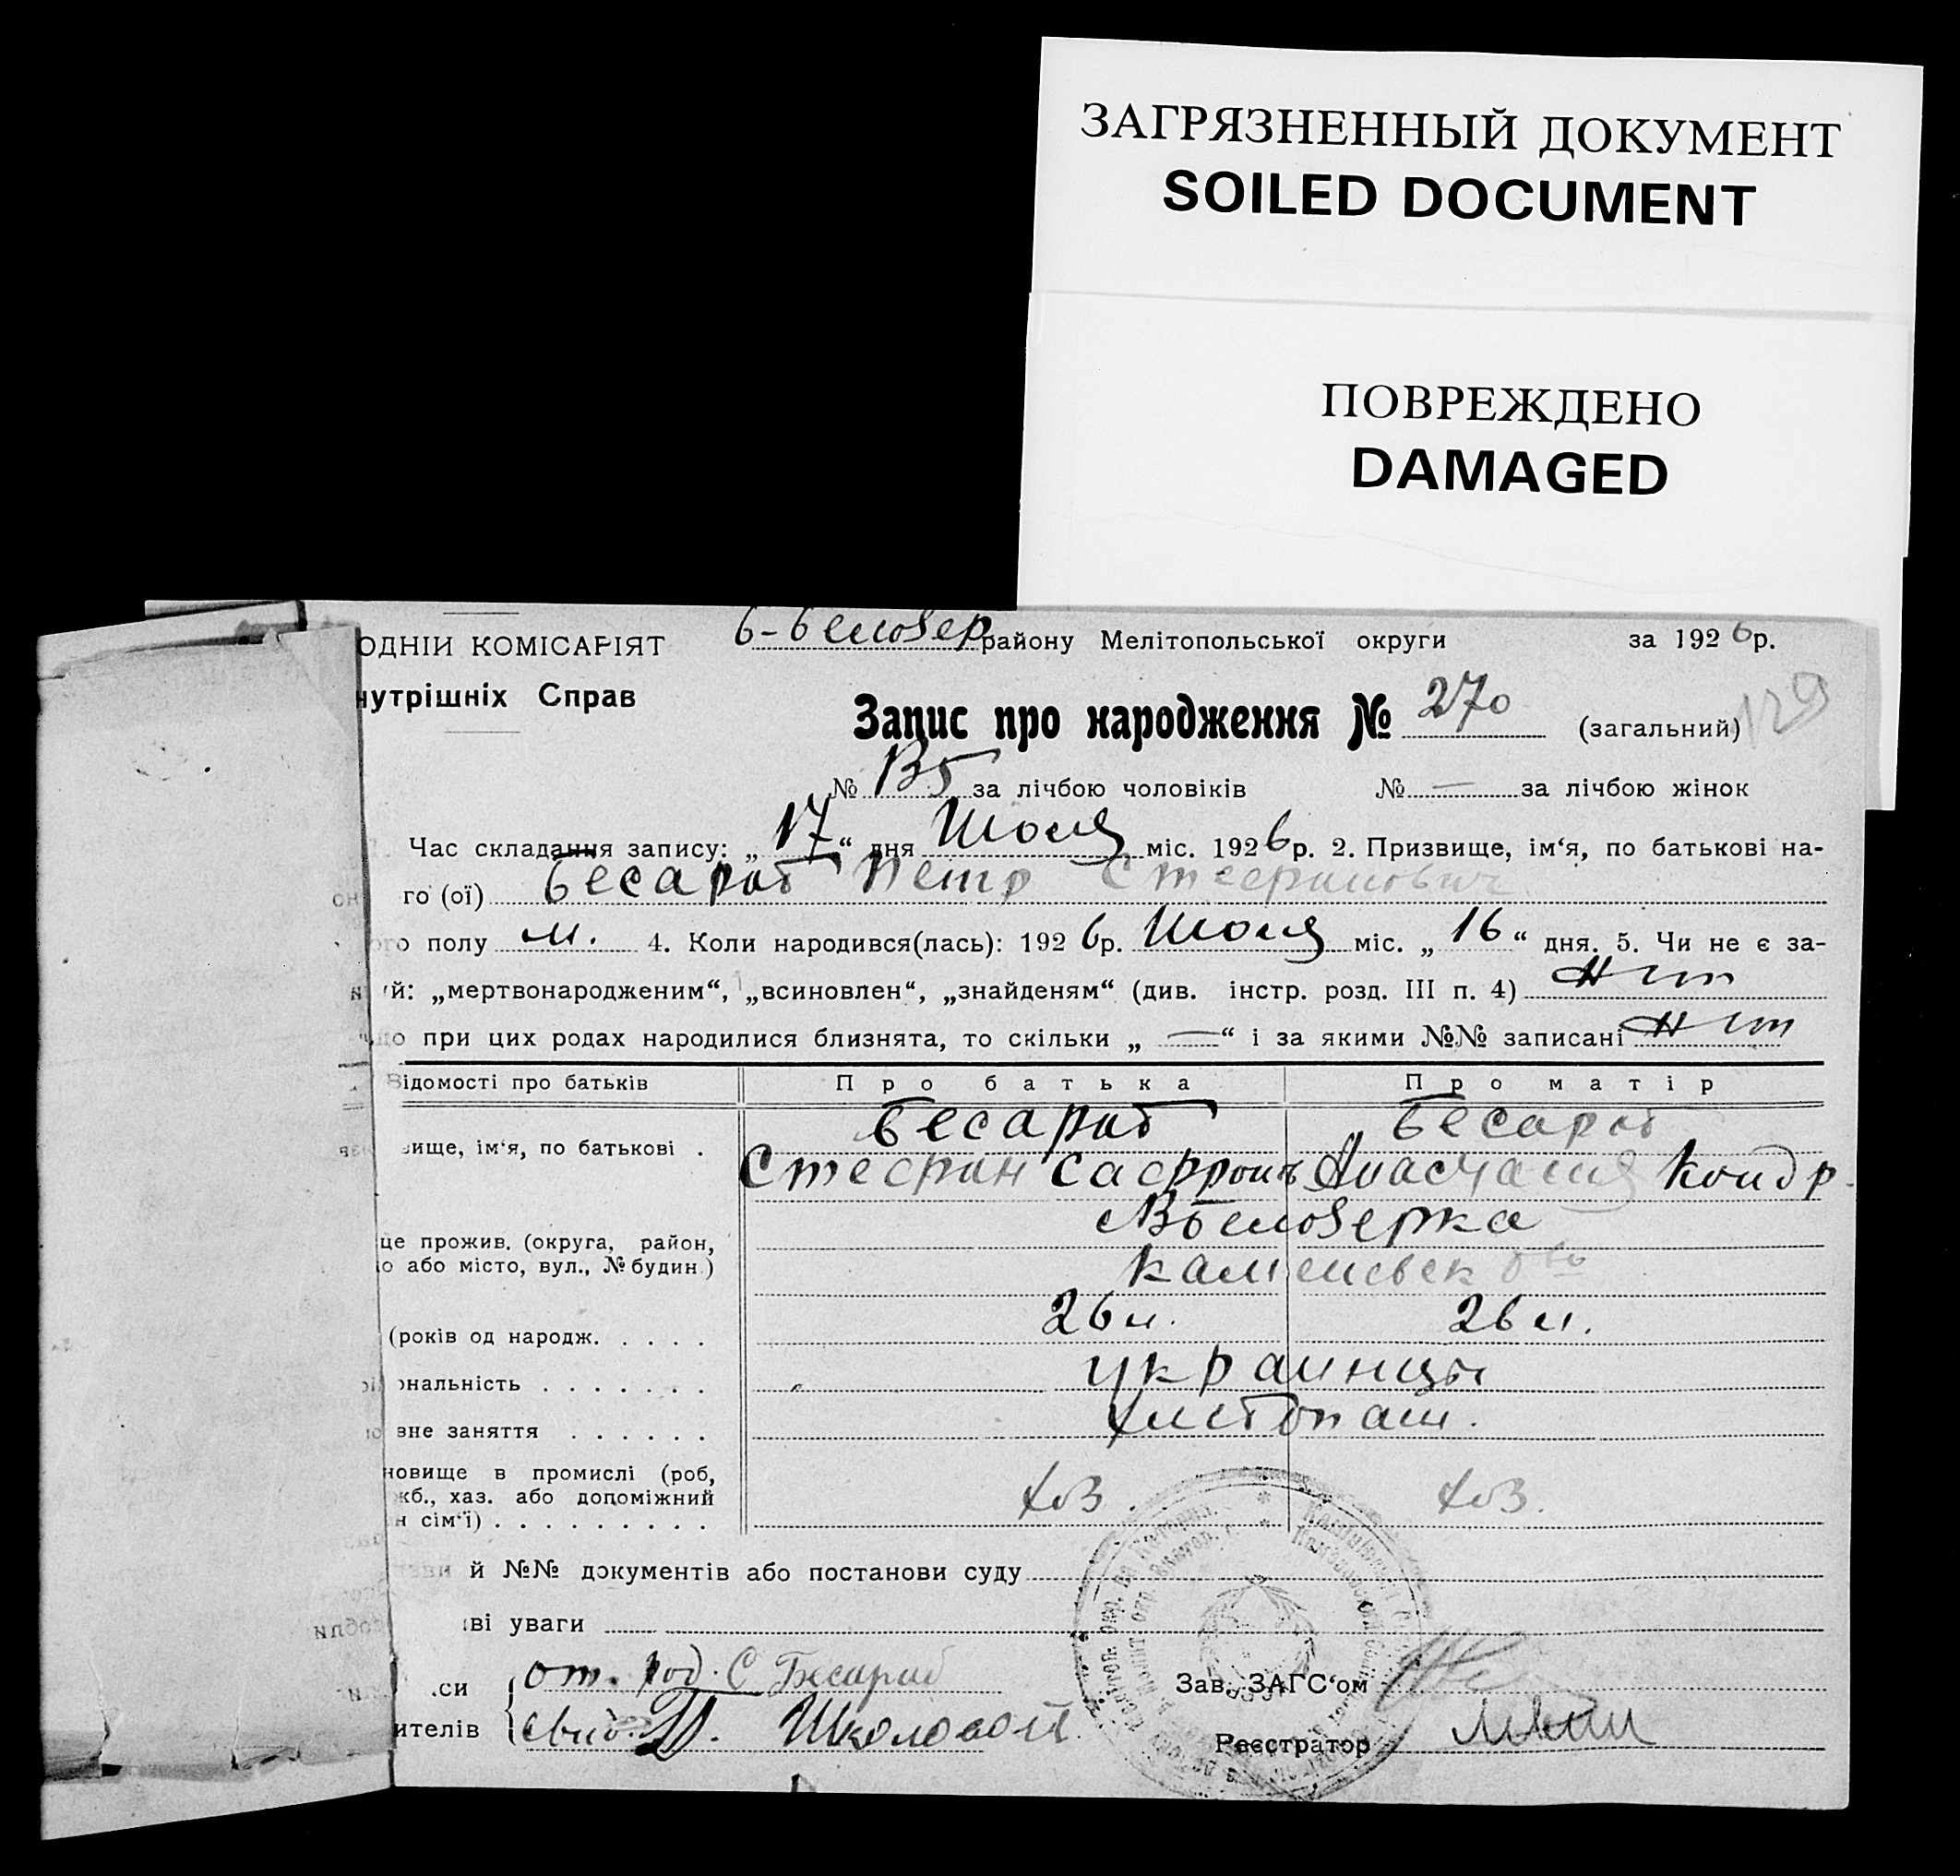 ЗАГРЯЗНЕННЫЙ ДОКУМЕНТ
SOILED DOCUMENT
ПОВРЕЖДЕНО
DAMAGED
ОДНІЙ КОМІСАРІЯТ
В-Белозер району Мелітопольської округи за 1926 р.
нутрішніх Справ
Запис про народження № 270 (загальний) 129
№ за лічбою чоловіків № — за лічбою жінок
Час складання запису: „17“ дня Июля міс. 1926 р. 2. Призвище, ім‘я, по батькові на-
го (ої) Бесараб Петр Стефанович
ого полу м. 4. Коли народився(лась): 1926 р. Июля міс. „16“ дня. 5. Чи не є за-
й: „мертвонародженим“, „всиновлен“, „знайденям“ (див. інстр. розд. III п. 4) Нет
що при цих родах народилися близнята, то скільки „—“ і за якими №№ записані Нет
Відомості про батьків Про батька Про матір
Бесараб Бесараб
вище, ім‘я, по батькові .
Стефан Сафрон Анастасия Кондр.
Белозерка
це прожив. (округа, район,
о або місто, вул., № будин.)
Каменевск
26 л. 26 л.
(років од народж. . . . .
ональність . . . . . . . украинцы
вне заняття . . . . . . хлебопаш.
новище в промислі (роб,
жб., хаз. або допоміжний
н сім‘ї) . . . . . . . . . хоз. хоз.
й №№ документів або постанови суду
ві уваги
си от. род. С Бесараб Зав. ЗАГС‘ом
ителів свид. Д. Школовой Реєстратор